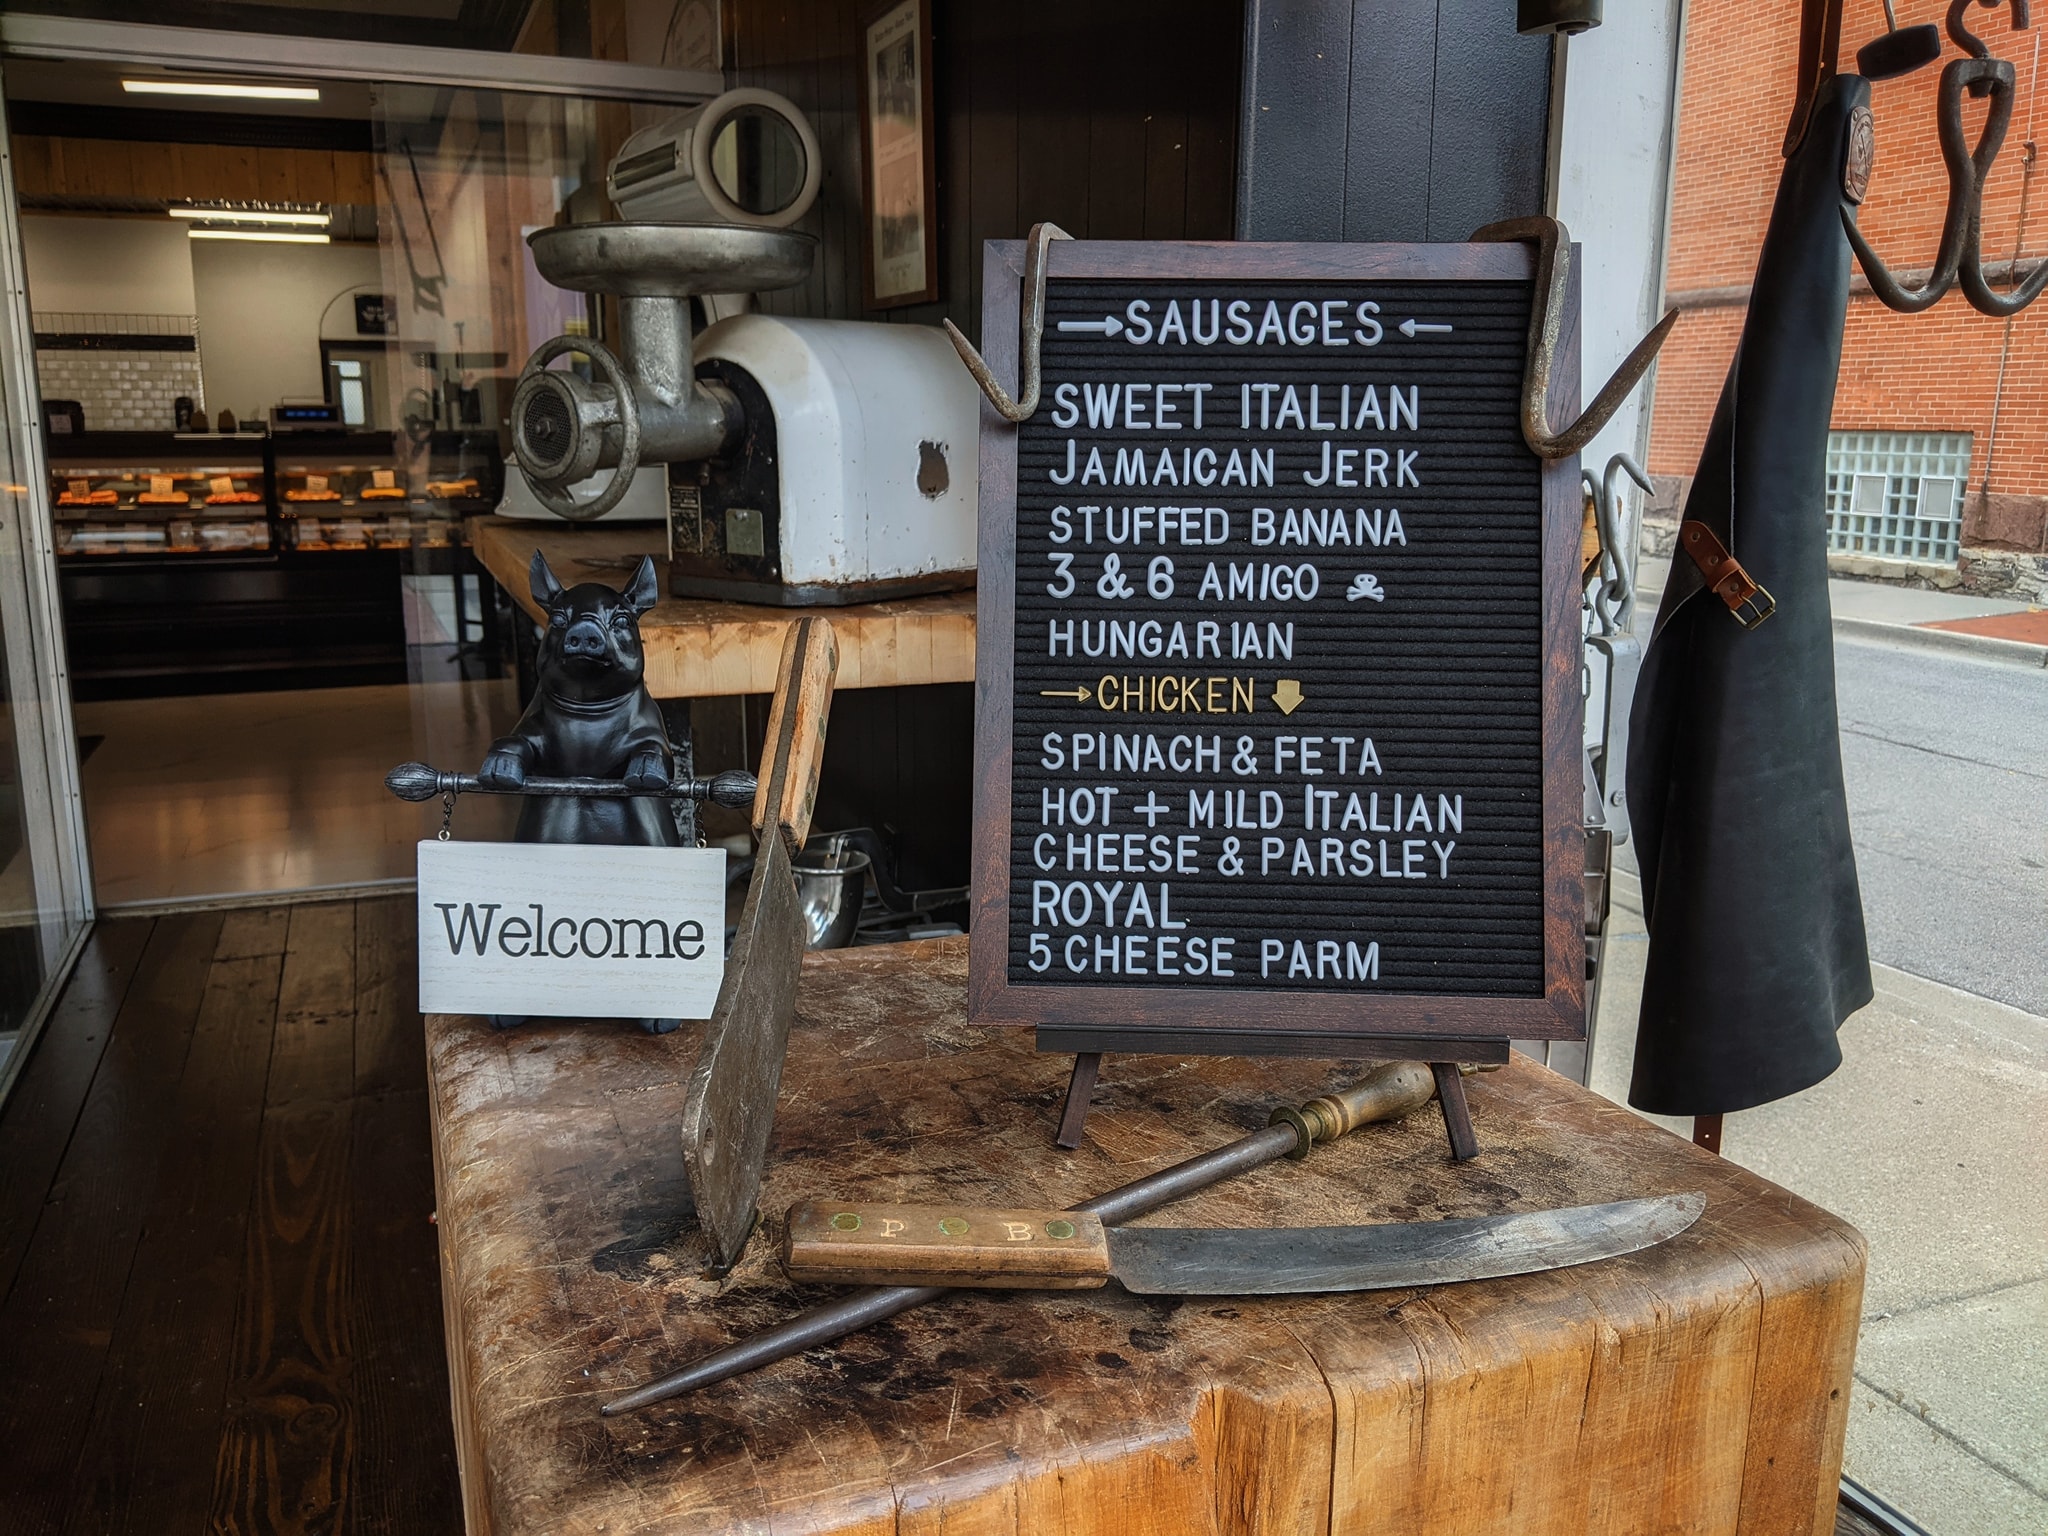 SAUSAGES
SWEET ITALIAN
JAMAICAN JERK
STUFFED BANANA
3 & 6 AMIGO
HUNGARIAN
CHICKEN
SPINACH & FETA
HOT + MILD ITALIAN
CHEESE & PARSLEY
ROYAL
5 CHEESE PARM
Welcome
P B